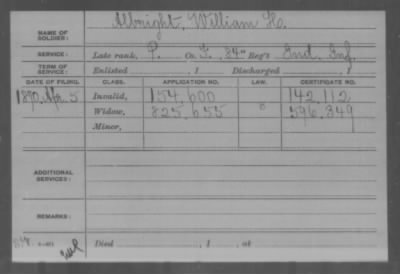 Albright, William H.
NAME OF SOLDIER:
SERVICE: Late rank, P. Co. F, 84" Reg't Ind. Inf.
TERM OF SERVICE: Enlisted , 1 Discharged , 1
DATE OF FILING. CLASS. APPLICATION NO. LAW. CERTIFICATE NO.
1890, Apr. 5 Invalid, 154,600 142,112
Widow, 825,655 596,849
Minor,
ADDITIONAL SERVICES:
REMARKS:
Died , 1 , at